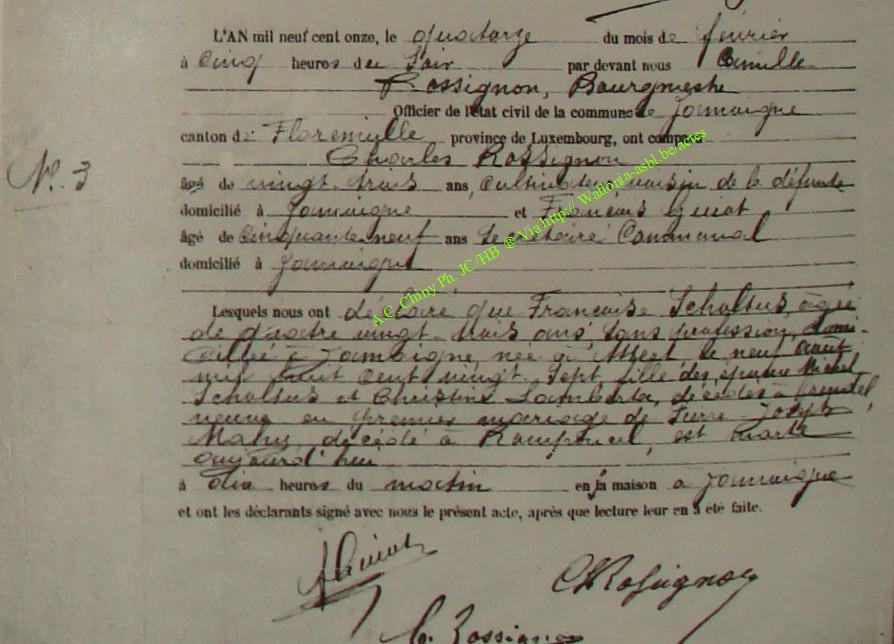 L'AN mil neuf cent onze, le quatorze du mois de février
à Cinq heures du Soir par devant nous Camille
Rossignon, Bourgmestre
Officier de l'état civil de la commune de Jamoigne
canton de Florenville province de Luxembourg, ont comparu
Charles Rossignon
N°. 3
âgé de vingt trois ans, Cultivateur voisin de la défunte
domicilié à Jamoigne et François Guiot
âgé de Cinquante neuf ans Secrétaire Communal
domicilié à Jamoigne
Lesquels nous ont déclaré que Françoise Scholtus, âgée
de quatre vingt trois ans, sans profession, domi-
ciliée à Jamoigne, née à Attert le neuf août
mil huit cent vingt sept fille des époux Michel
Scholtus et Christine Lamberty, décédés à
veuve en premier mariage de Pierre Joseph
Mahy, décédé à est morte
aujourd'hui
à dix heures du matin en la maison à Jamoigne
et ont les déclarants signé avec nous le présent acte, après que lecture leur en a été faite.
F Guiot
Ch Rossignon
C. Rossignon
A.C. Chiny Ph. JC/HB @ Via http:// Wallonia-asbl.be/actes